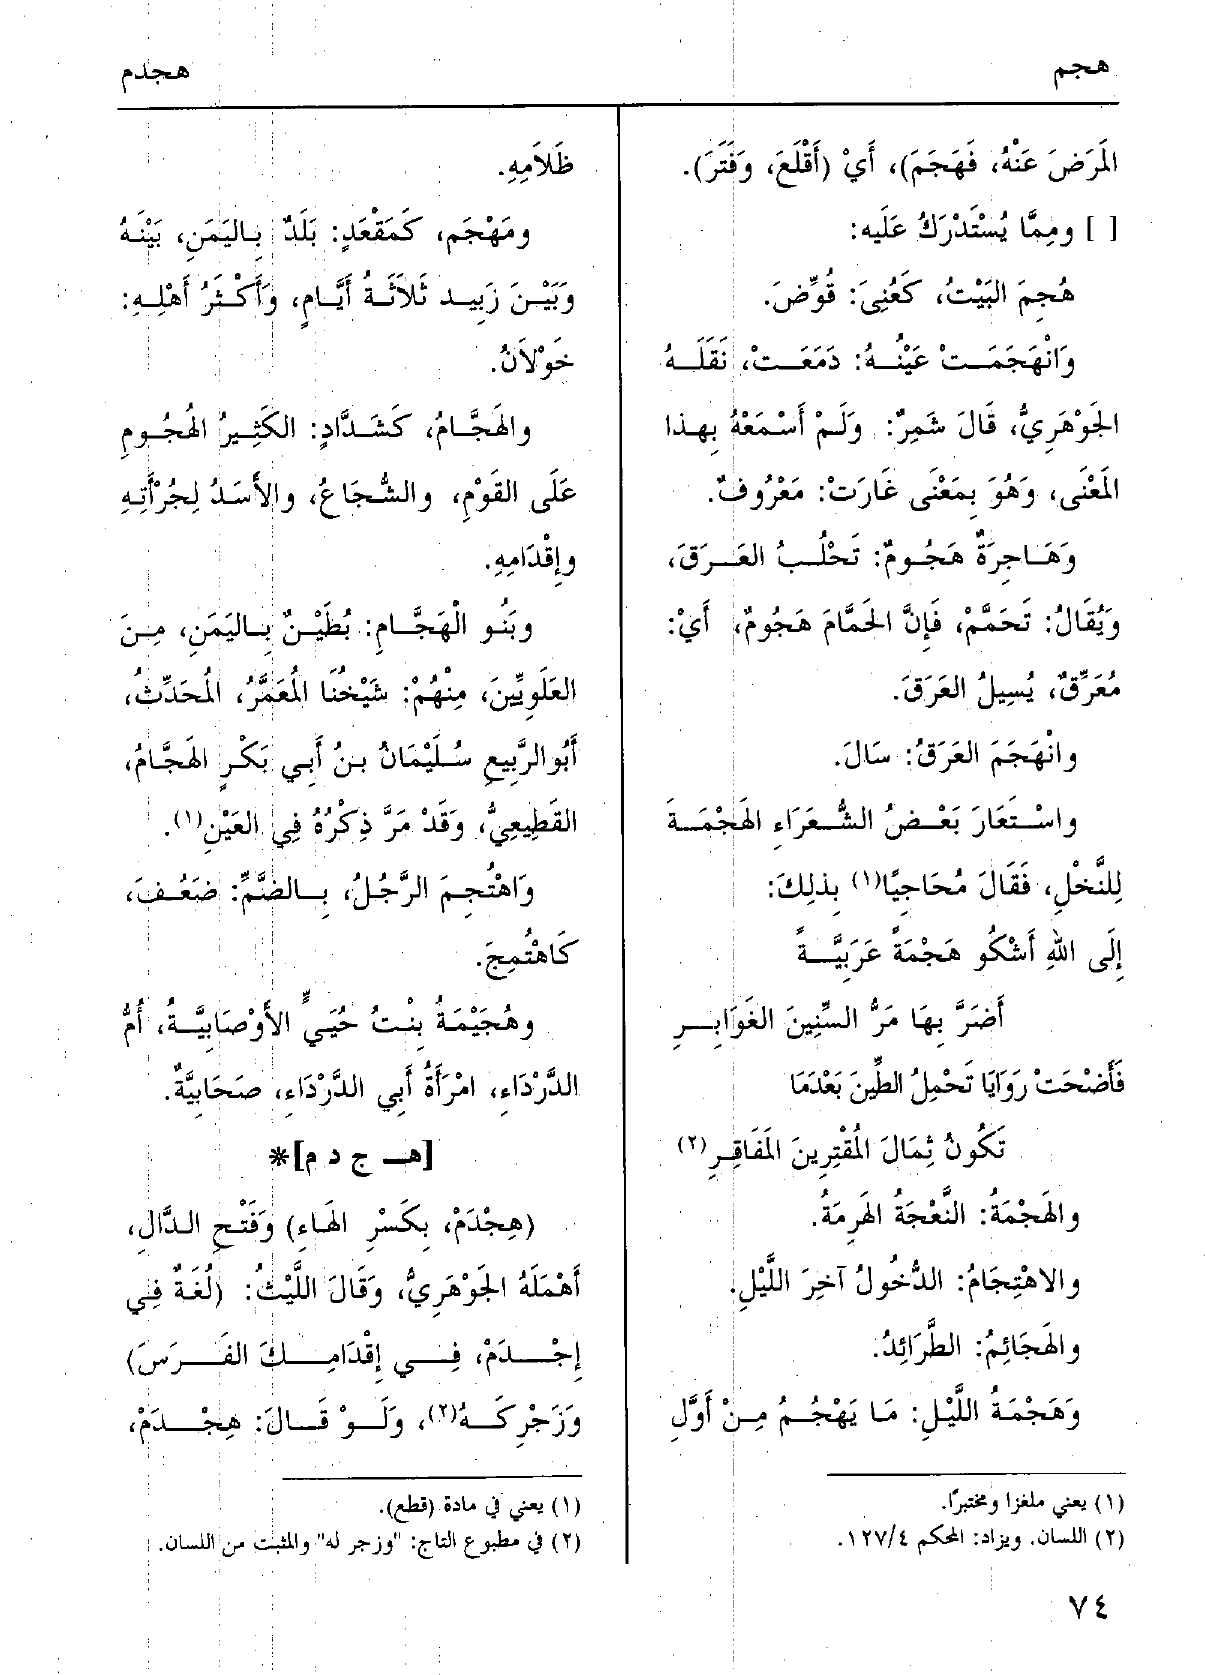 هجم
هجدم
المَرَضَ عَنْهُ، فَهَجَمَ)، أَيْ (أَقْلَعَ، وَفَتَرَ).
[ ] ومِمَّا يُسْتَدْرَكُ عَلَيه:
هُجِمَ البَيْتُ، كَعُنِيَ: قُوِّضَ.
وَانْهَجَمَتْ عَيْنُهُ: دَمَعَتْ، نَقَلَهُ
الجَوْهَرِيُّ، قَالَ شَمِرٌ: وَلَمْ أَسْمَعْهُ بِهذا
المَعْنَى، وَهُوَ بِمَعْنَى غَارَتْ: مَعْرُوفٌ.
وَهَاجِرَةٌ هَجُومٌ: تَحْلُبُ العَرَقَ،
وَيُقَالُ: تَحَمَّمْ، فَإِنَّ الحَمَّامَ هَجُومٌ، أَيْ:
مُعَرِّقٌ، يُسِيلُ العَرَقَ.
وانْهَجَمَ العَرَقُ: سَالَ.
واسْتَعَارَ بَعْضُ الشُّعَرَاءِ الهَجْمَةَ
لِلنَّخْلِ، فَقَالَ مُحَاجِيًا(١) بِذلِكَ:
إِلَى اللهِ أَشْكُو هَجْمَةً عَرَبِيَّةً
أَضَرَّ بِهَا مَرُّ السِّنِينَ الغَوَابِرِ
فَأَضْحَتْ رَوَايَا تَحْمِلُ الطِّينَ بَعْدَمَا
تَكُونُ ثِمَالَ المُقْتِرِينَ المَفَاقِرِ(٢)
والهَجْمَةُ: النَّعْجَةُ الهَرِمَةُ.
والاهْتِجَامُ: الدُّخُولُ آخِرَ اللَّيْلِ.
والهَجَائِمُ: الطَّرَائِدُ.
وَهَجْمَةُ اللَّيْلِ: مَا يَهْجُمُ مِنْ أَوَّلِ
(١) يعني ملغزا ومختبرًا.
(٢) اللسان. ويزاد: المحكم ١٢٧/٤.
ظَلاَمِهِ.
ومَهْجَم، كَمَقْعَدٍ: بَلَدٌ بِاليَمَنِ، بَيْنَهُ
وَبَيْنَ زَبِيد ثَلاَثَةُ أَيَّامٍ، وَأَكْثَرُ أَهْلِهِ:
خَوْلاَنُ.
والهَجَّامُ، كَشَدَّادٍ: الكَثِيرُ الهُجُومِ
عَلَى القَوْمِ، والشُّجَاعُ، والأَسَدُ لِجُرْأَتِهِ
وإِقْدَامِهِ.
وبَنُو الْهَجَّامِ: بُطَيْنٌ بِاليَمَنِ، مِنَ
العَلَوِيِّينَ، مِنْهُمْ: شَيْخُنَا المُعَمَّرُ، المُحَدِّثُ،
أَبُوالرَّبِيعِ سُلَيْمَانُ بنُ أَبِي بَكْرٍ الهَجَّامُ،
القَطِيعِيُّ، وَقَدْ مَرَّ ذِكْرُهُ فِي العَيْنِ(١).
وَاهْتُجِمَ الرَّجُلُ، بِالضَّمِّ: ضَعُفَ،
كَاهْتُمِجَ.
وهُجَيْمَةُ بِنْتُ حُيَيٍّ الأَوْصَابِيَّةُ، أُمُّ
الدَّرْدَاءِ، امْرَأَةُ أَبِي الدَّرْدَاءِ، صَحَابِيَّةٌ.
[هـ ج د م]*
(هِجْدَمْ، بِكَسْرِ الهَاءِ) وَفَتْحِ الدَّالِ،
أَهْمَلَهُ الجَوْهَرِيُّ، وَقَالَ اللَّيْثُ: (لُغَةٌ فِي
إِجْدَمْ، فِي إِقْدَامِكَ الفَرَسَ)
وَزَجْرِكَهُ(٢)، وَلَوْ قَالَ: هِجْدَمْ،
(١) يعني في مادة (قطع).
(٢) في مطبوع التاج: "وزجر له" والمثبت من اللسان.
٧٤